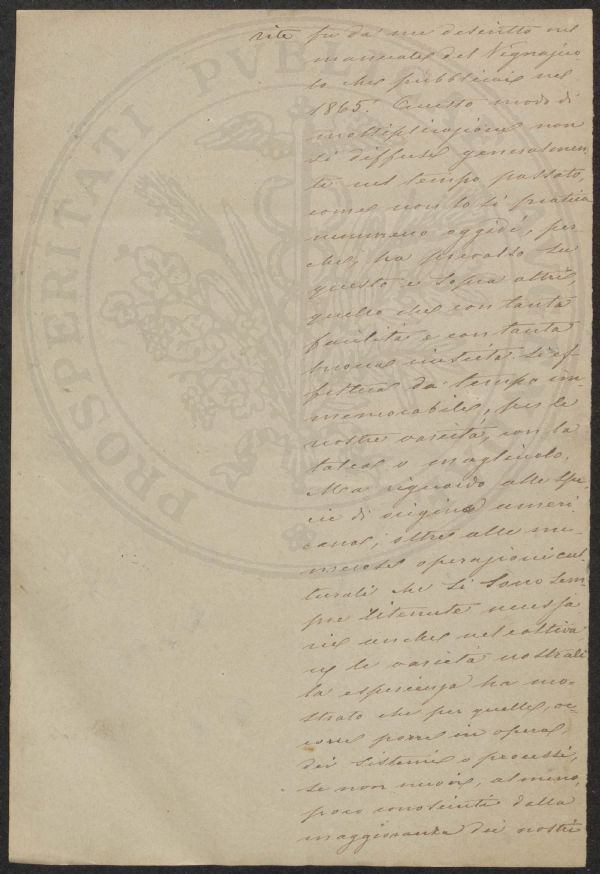 vite fu da me descritto nel
manuale del Vignajuo-
lo che pubblicai nel
1865. Questo modo di
moltiplicazione non
si diffuse generalmen-
te nel tempo passato,
come non lo si pratica
nemmeno oggidì, per
che, ha prevalso su
questo e sopra altri,
quello che con tanta
facilità e con tanta
buona riuscita si ef-
fettua da tempo im-
memorabile, per le
nostre varietà, con la
talea o magliuolo.
Ma riguardo alle spe-
cie di origine ameri
cana, oltre alle nu-
merose operazioni cul-
turali che si sono sem
pre ritenute necessa
rie anche nel coltiva
re le varietà nostrali
la esperienza ha mo-
strato che per quelle, oc-
corre porre in opera
dei sistemi o processi,
se non nuovi, almeno,
poco conosciuti dalla
maggioranza dei nostri
PROSPERITATI PVBL